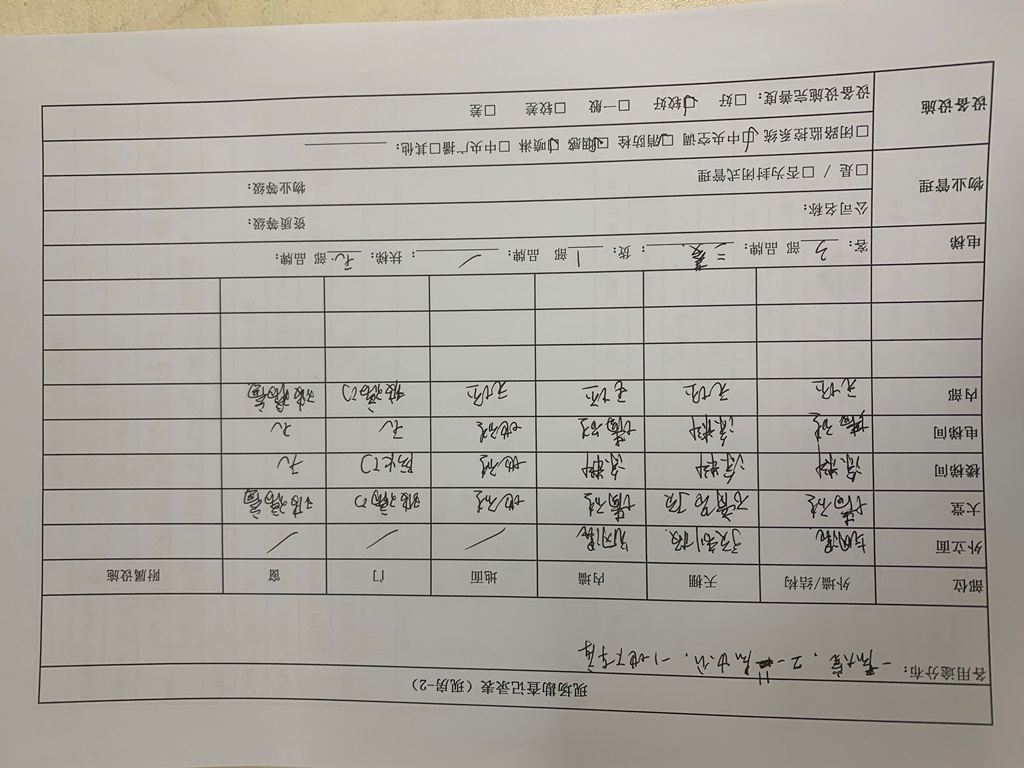 现场勘查记录表（现房-2）
各用途分布：一层大堂、2-11层办公、-1地下车库
部位 外墙/结构 天棚 内墙 地面 门 窗 附属设施
外立面 预制板 / / /
大堂 墙砖 石膏吊顶 墙砖 地砖 玻璃门 玻璃窗
楼梯间 涂料 涂料 涂料 地砖 防火门 无
电梯间 墙砖 涂料 墙砖 地砖 无 无
内部 毛坯 毛坯 毛坯 毛坯 玻璃门 玻璃窗
电梯 客：3部 品牌：三菱：货：1部 品牌：/：扶梯：无部 品牌：
物业管理 公司名称： 资质等级：
□是 / □否为封闭式管理 物业等级：
设备设施 □闭路监控系统 ☑中央空调 ☑消防栓 ☑烟感 ☑喷淋 □中央广播 □其他：
设备设施完善度：□好 ☑较好 □一般 □较差 □差